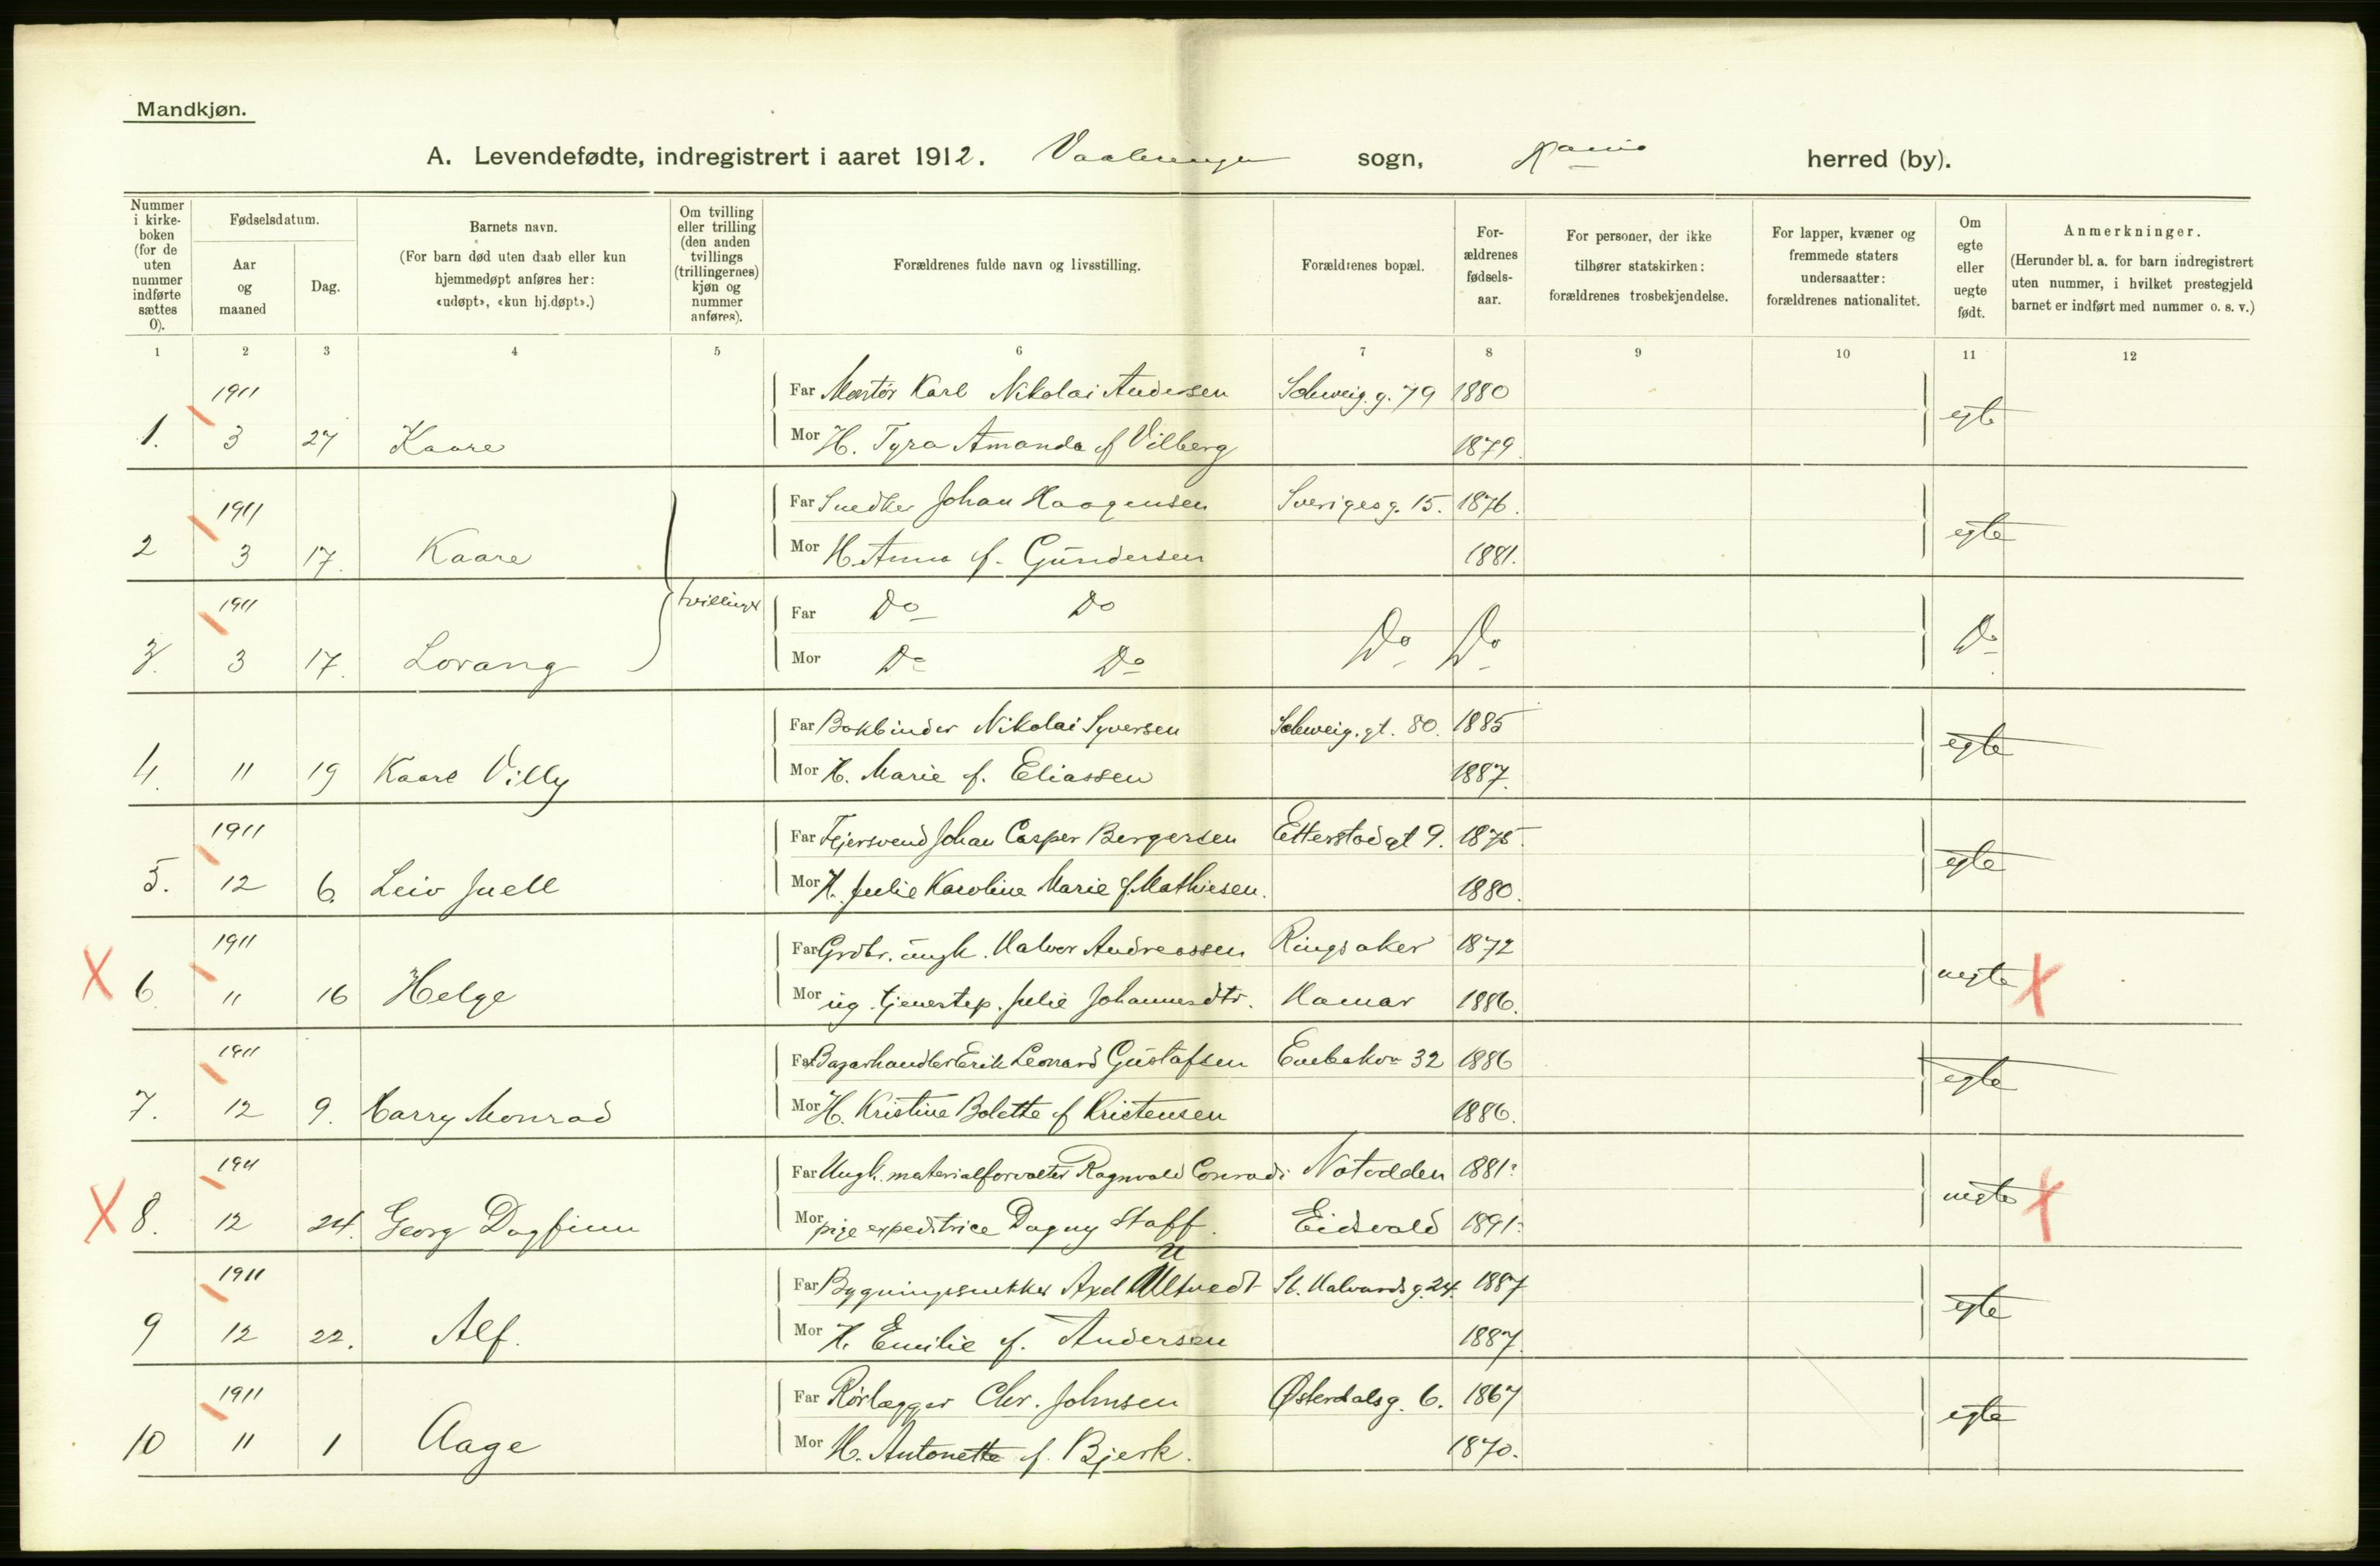 Mandkjøn.
A. Levendefødte, indregistrert i aaret 1912. Vaalerengen sogn, Kania herred (by).
Nummer i kirke-boken (for de uten nummer indførte sættes 0).
Fødselsdatum.
Aar og maaned
Dag.
Barnets navn.
(For barn død uten daab eller kun hjemmedøpt anføres her: «udøpt», «kun hj.døpt».)
Om tvilling eller trilling (den anden tvillings (trillingernes) kjøn og nummer anføres).
Forældrenes fulde navn og livsstilling.
Forældrenes bopæl.
For-ældrenes fødsels-aar.
For personer, der ikke tilhører statskirken: forældrenes trosbekjendelse.
For lapper, kvæner og fremmede staters undersaatter: forældrenes nationalitet.
Om egte eller uegte født.
Anmerkninger.
(Herunder bl. a. for barn indregistrert uten nummer, i hvilket prestegjeld barnet er indført med nummer o. s. v.)
1 2 3 4 5 6 7 8 9 10 11 12
1911 Far Montør Karl Nikolai Andersen Schweig. g. 79 1880
1. 3 27 Kaare Mor H. Tyra Amanda f Vilberg 1879. egte
1911 Far Snedker Johan Haagensen Sverigesg. 15. 1876.
2 3 17. Kaare Mor H. Anna f. Gundersen 1881. egte
1911 tvillinger Far Do Do
3. 3 17. Lorang Mor Do Do Do Do Do
Far Bokbinder Nikolai Syversen Schweig. gt. 80. 1885
4. 11 19 Kaare Villy Mor H. Marie f. Eliassen 1887. egte
1911 Far Fejersvend Johan Casper Bergersen Etterstadgt 9. 1875.
5. 12 6. Leiv Juell Mor H. Julie Karoline Marie f. Mathiesen. 1880. egte
1911 Far Grdbr. ungk. Halvor Andreassen Ringsaker 1872
X 6. 11 16 Helge Mor ug. tjenestep. Julie Johannesdtr. Hamar 1886. uegte X
1911 Far Bazarhandler Erik Leonard Gustafsen Enebakv 32 1886
7. 12 9. Harry Monrad Mor H. Kristine Bolette f Kristensen 1886. egte
1911 Far Ungk. materialforvalter Ragnvald Conradi Notodden 1881.
X 8. 12 24. Georg Dagfinn Mor pige expeditrice Dagny Staff. Eidsvold 1891. uegte X
1911 Far Bygningssnekker Axel Ultvedt St. Halvardsg. 24. 1887
9 12 22. Alf. Mor H. Emilie f. Andersen 1887. egte
1911 Far Rørlægger Chr. Johnsen Østerdalsg. 6. 1867
10 11 1 Aage Mor H. Antonette f. Bjerk. 1870. egte